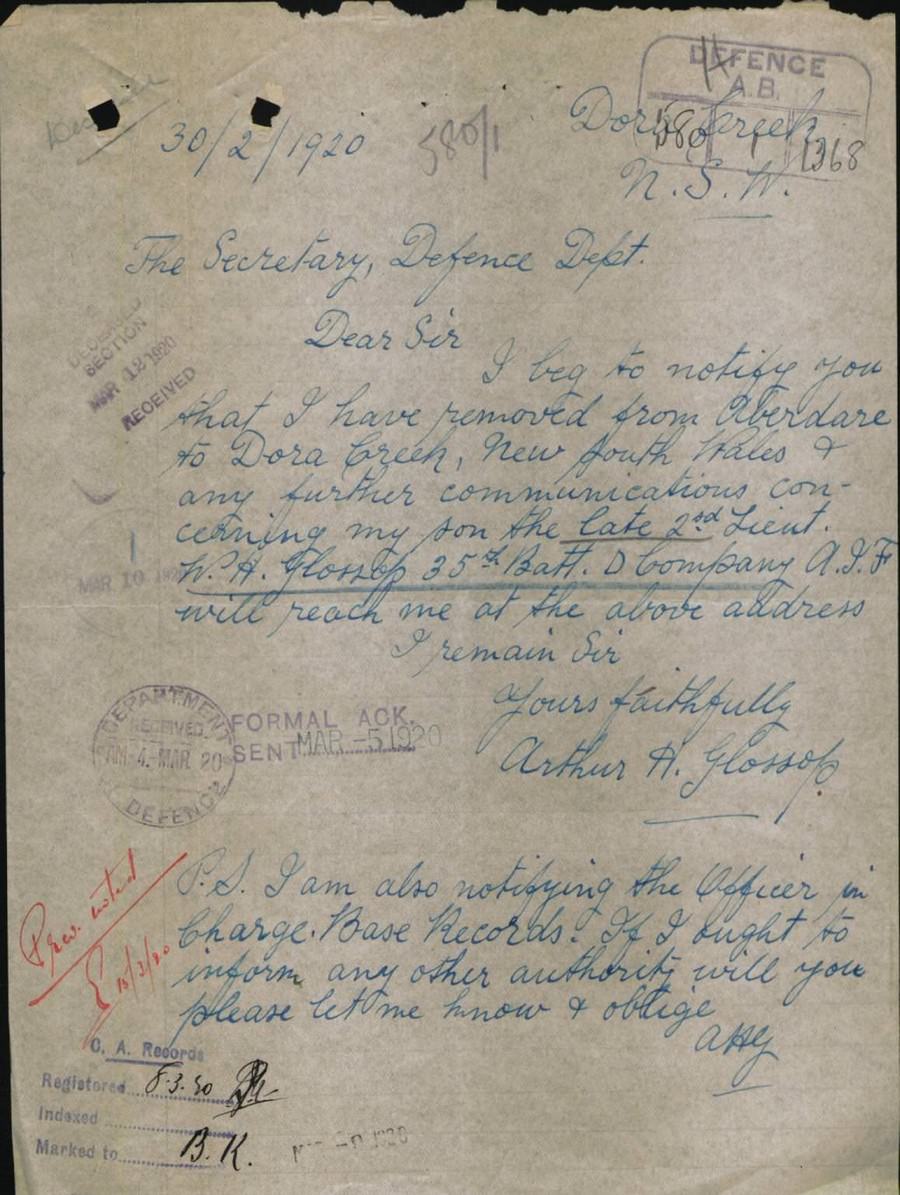 DEFENCE
A.B.
580 1 1368
30/2/1920
580/1
Dora Creek
N. S. W.
The Secretary, Defence Dept.
Dear Sir
I beg to notify you
that I have removed from Aberdare
to Dora Creek, New South Wales &
any further communications con-
cerning my son the late 2nd Lieut.
W. H. Glossop 35th Batt. D Company A.I.F
will reach me at the above address
I remain Sir
Yours faithfully
Arthur H. Glossop
SECTION
MAR 12 1920
RECEIVED
MAR 10 192
DEPARTMENT
RECEIVED.
AM-4-MAR 20
DEFENCE
FORMAL ACK.
SENT MAR -5 1920
P.S. I am also notifying the Officer in
Charge. Base Records. If I ought to
inform any other authority will you
please let me know & oblige
AHG
Prev. noted
15/3/20
C. A. Records
Registered 8.3.20
Indexed
Marked to B.K.
1920